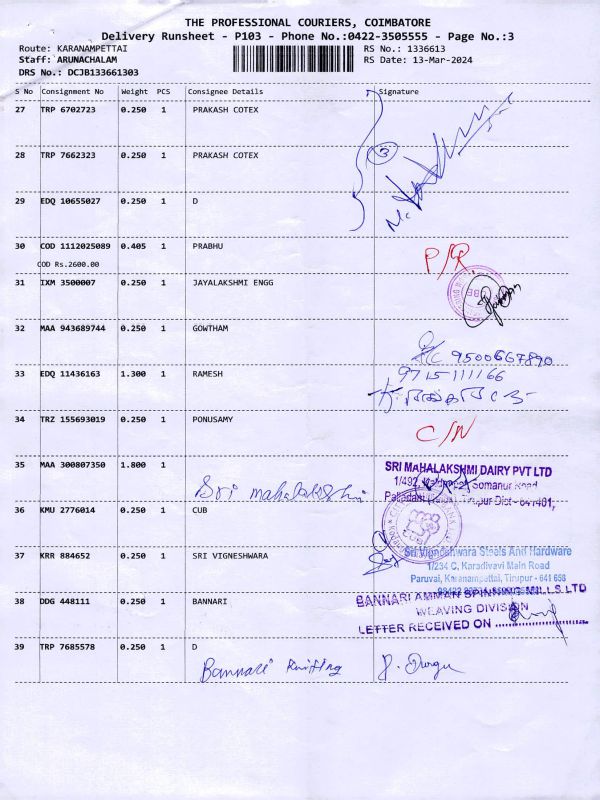 THE PROFESSIONAL COURIERS, COIMBATORE
Delivery Runsheet - P103 - Phone No.:0422-3505555 - Page No.:3
Route: KARANAMPETTAI RS No.: 1336613
Staff: ARUNACHALAM RS Date: 13-Mar-2024
DRS No.: DCJB133661303
S No Consignment No Weight PCS Consignee Details Signature
27 TRP 6702723 0.250 1 PRAKASH COTEX
3
28 TRP 7662323 0.250 1 PRAKASH COTEX
29 EDQ 10655027 0.250 1 D
30 COD 1112025089 0.405 1 PRABHU P/R
COD Rs.2600.00
31 IXM 3500007 0.250 1 JAYALAKSHMI ENGG
32 MAA 943689744 0.250 1 GOWTHAM
9500667890
33 EDQ 11436163 1.300 1 RAMESH 9715111166
34 TRZ 155693019 0.250 1 PONUSAMY C/N
35 MAA 300807350 1.800 1 SRI MAHALAKSHMI DAIRY PVT LTD
1/492, Somanur Road
Sri mahalakshmi Palladam Tirupur Dist - 641401,
36 KMU 2776014 0.250 1 CUB
37 KRR 884652 0.250 1 SRI VIGNESHWARA Sri Vigneshwara Steels And Hardware
1/234 C, Karadivavi Main Road
Paruvai, Karanampettai, Tirupur - 641 658
38 DDG 448111 0.250 1 BANNARI BANNARI AMMAN SPINNING MILLS LTD
WEAVING DIVISION
LETTER RECEIVED ON
39 TRP 7685578 0.250 1 D
Bannari Knitting P. Durga